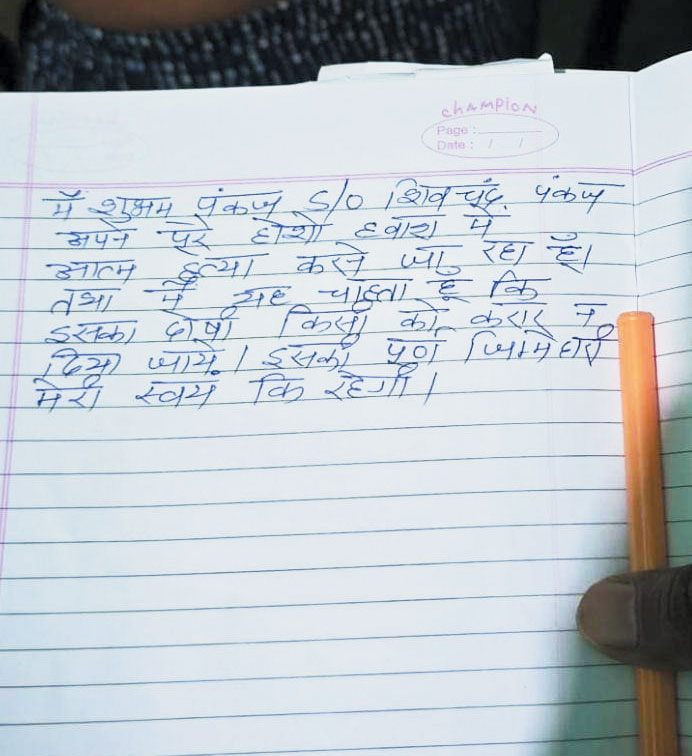 CHAMPION
Page :
Date : / /
में शुभम पंकज S/O शिव चंद्र पंकज
अपने पुरे होशो हवाश में
आत्म हत्या करने जा रहा हूँ।
तथा में यह चाहता हू कि
इसका दोषी किसी को करार न
दिया जाये। इसकी पुर्ण जिम्मेदारी
मेरी स्वयं कि रहेगी।